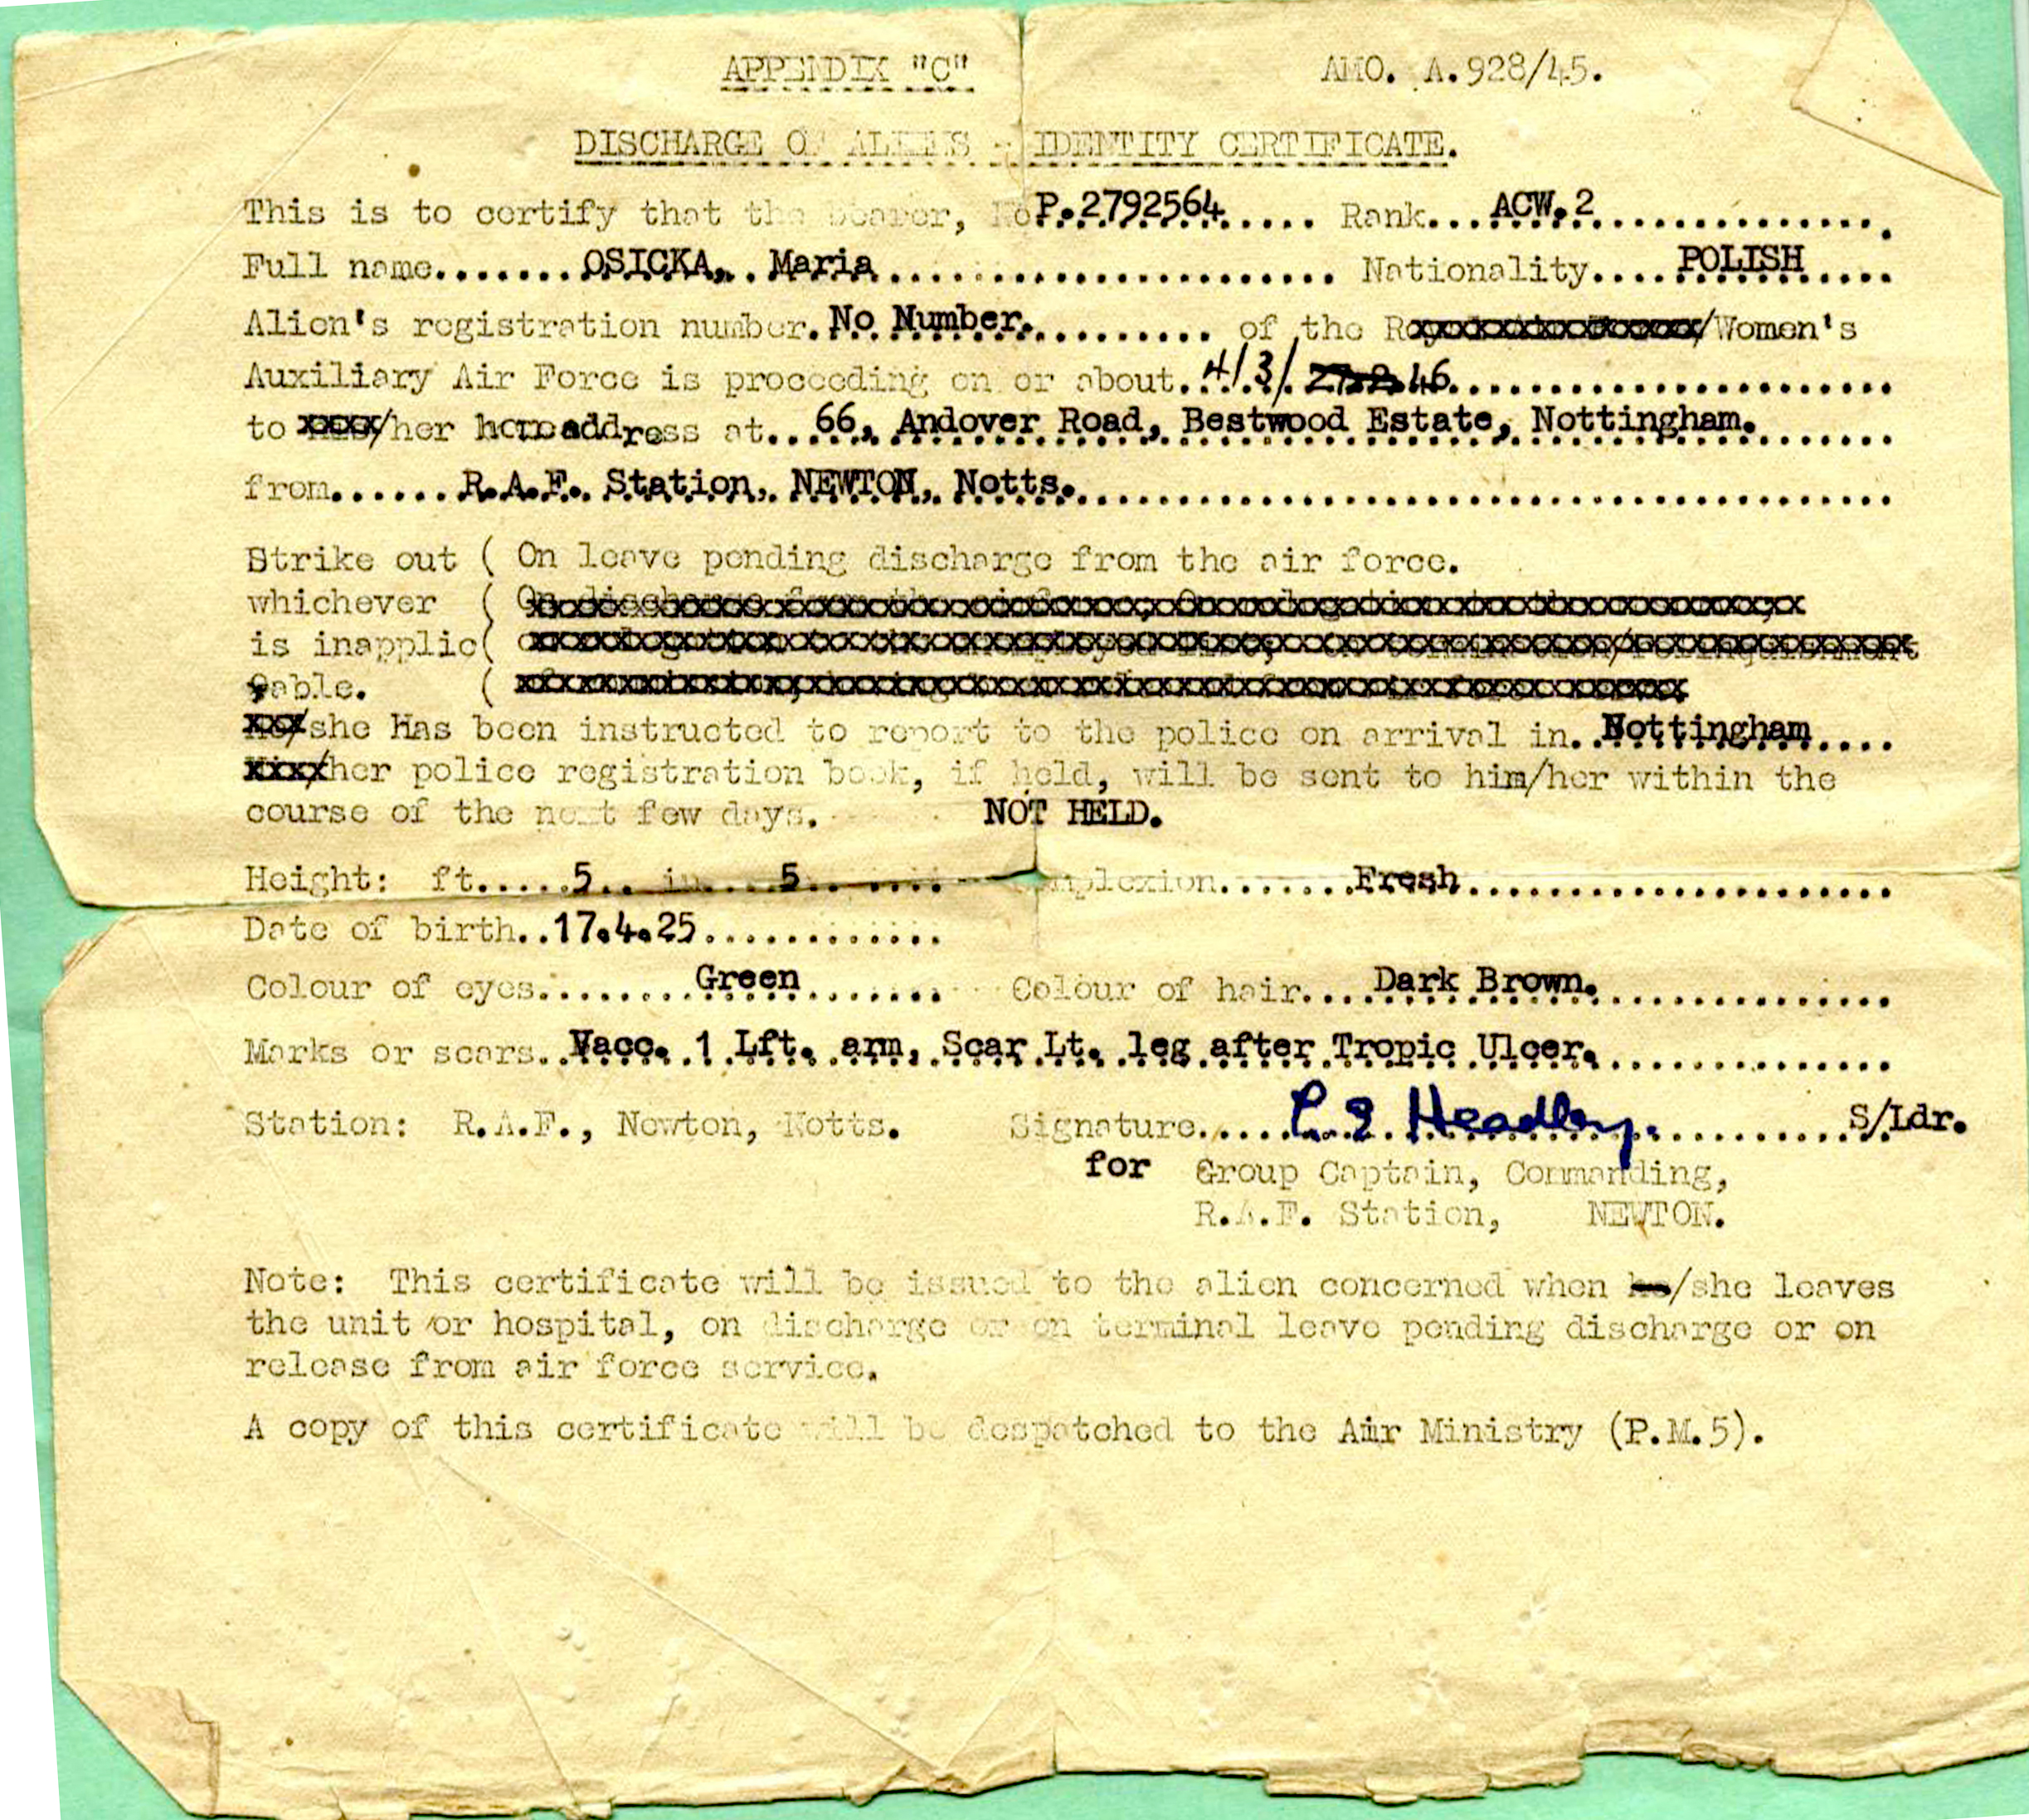 APPENDIX "C" AMO. A.928/45.
DISCHARGE OF ALIENS - IDENTITY CERTIFICATE.
This is to certify that the bearer, No P.2792564..... Rank...ACW.2..............
Full name.......OSICKA,..Maria...................... Nationality....POLISH....
Alien's registration number.No Number.......... of the Ro /Women's
Auxiliary Air Force is proceeding on or about.4/3/ 27.2.46......................
to /her home address at...66, Andover Road, Bestwood Estate, Nottingham.......
from......R.A.F. Station, NEWTON, Notts........................................
Strike out ( On leave pending discharge from the air force.
whichever (
is inapplic(
able. (
/she Has been instructed to report to the police on arrival in..Nottingham....
/her police registration book, if held, will be sent to him/her within the
course of the next few days. NOT HELD.
Height: ft.....5.. in...5....... Complexion.......Fresh....................
Date of birth..17.4.25............
Colour of eyes........Green....... Colour of hair....Dark Brown..............
Marks or scars..Vacc. 1 Lft. arm, Scar Lt. leg after Tropic Ulcer...............
Station: R.A.F., Newton, Notts. Signature..... Headley...........S/Ldr.
for Group Captain, Commanding,
R.A.F. Station, NEWTON.
Note: This certificate will be issued to the alien concerned when he/she leaves
the unit or hospital, on discharge or on terminal leave pending discharge or on
release from air force service.
A copy of this certificate will be despatched to the Air Ministry (P.M.5).